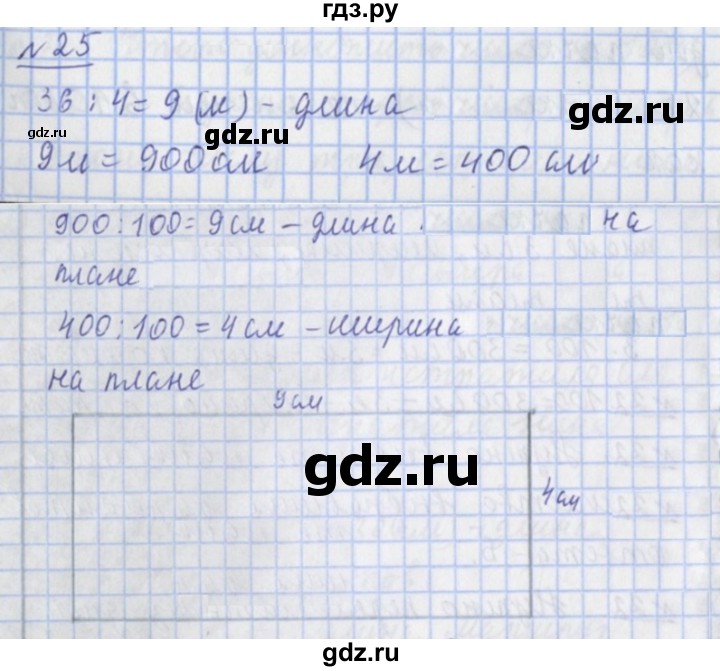 гдз.ру
№25
36 : 4 = 9 (м) - длина
gdz.ru
gdz.ru
9м = 900см 4м = 400 см
900 : 100 = 9см - длина на
плане
400 : 100 = 4см - ширина
на плане
9см
gdz.ru
4см
гдз.ру